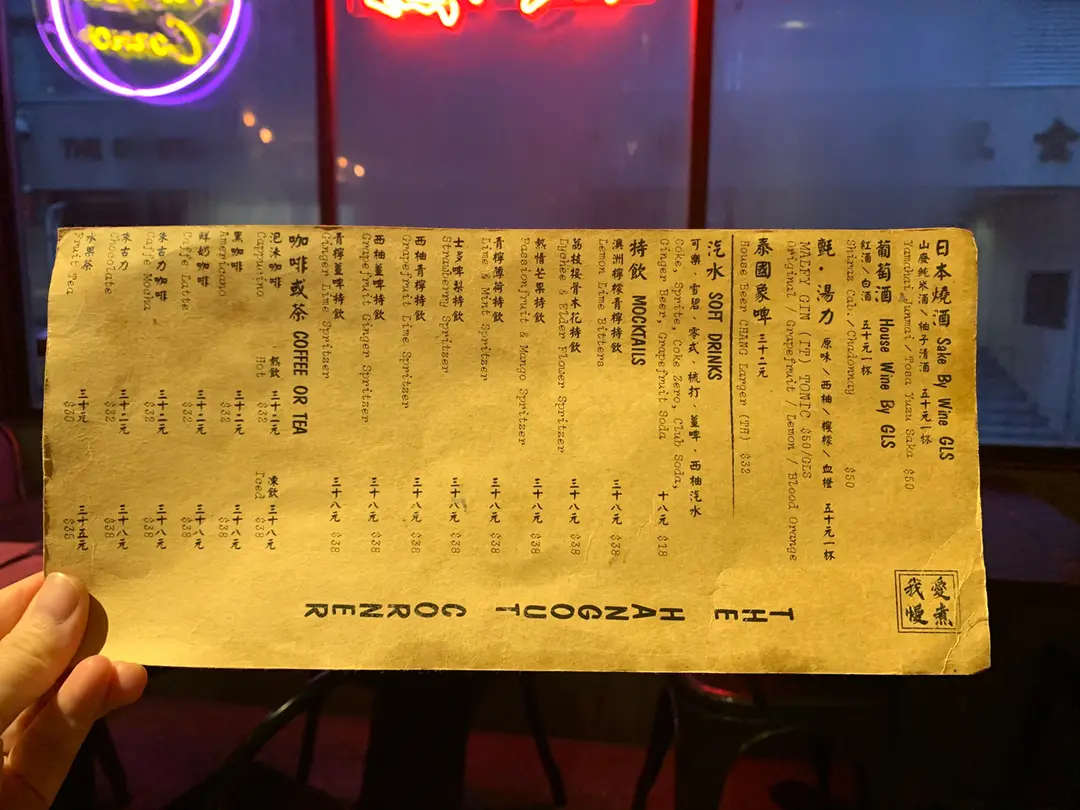 日本燒酒 Sake By Wine GLS
山廢純米酒／柚子清酒 五十元一杯
Yamchai Junmai/ Toaa Yuzu Saka $50
葡萄酒 House Wine By GLS
紅酒／白酒 五十元一杯
Shiraz Cab./Chadonnay $50
氈．湯力 原味／西柚／檸檬／血橙 五十元一杯
MALFY GIN (IT) TONIC $50/GLS
Original / Grapefruit / Lemon / Blood Orange
泰國象啤 三十二元
House Beer CHANG Larger (TH) $32
汽水 SOFT DRINKS
可樂、雪碧、零式、梳打、薑啤、西柚汽水
Coke, Sprite, Coke Zero, Club Soda,
Ginger Beer, Grapefruit Soda 十八元 $18
特飲 MOCKTAILS
澳洲檸檬青檸特飲
Lemon Lime Bitters 三十八元 $38
荔枝接骨木花特飲
Lychee & Elder Flower Spritzer 三十八元 $38
熱情芒果特飲
Passionfruit & Mango Spritzer 三十八元 $38
青檸薄荷特飲
Lime & Mint Spritzer 三十八元 $38
士多啤梨特飲
Strawberry Spritzer 三十八元 $38
西柚青檸特飲
Grapefruit Lime Spritzer 三十八元 $38
西柚薑啤特飲
Grapefruit Ginger Spritzer 三十八元 $38
青檸薑啤特飲
Ginger Lime Spritzer 三十八元 $38
咖啡或茶 COFFEE OR TEA
熱飲 凍飲
Hot Iced
泡沫咖啡 三十二元 三十八元
Cappucino $32 $38
黑咖啡 三十二元 三十八元
Americano $32 $38
鮮奶咖啡 三十二元 三十八元
Caffe Latte $32 $38
朱古力咖啡 三十二元 三十八元
Caffe Mocha $32 $38
朱古力 三十二元 三十八元
Chocolate $32 $38
水果茶 三十元 三十五元
Fruit Tea $30 $35
THE HANGOUT CORNER
愛煮
我慢
Corner
THE